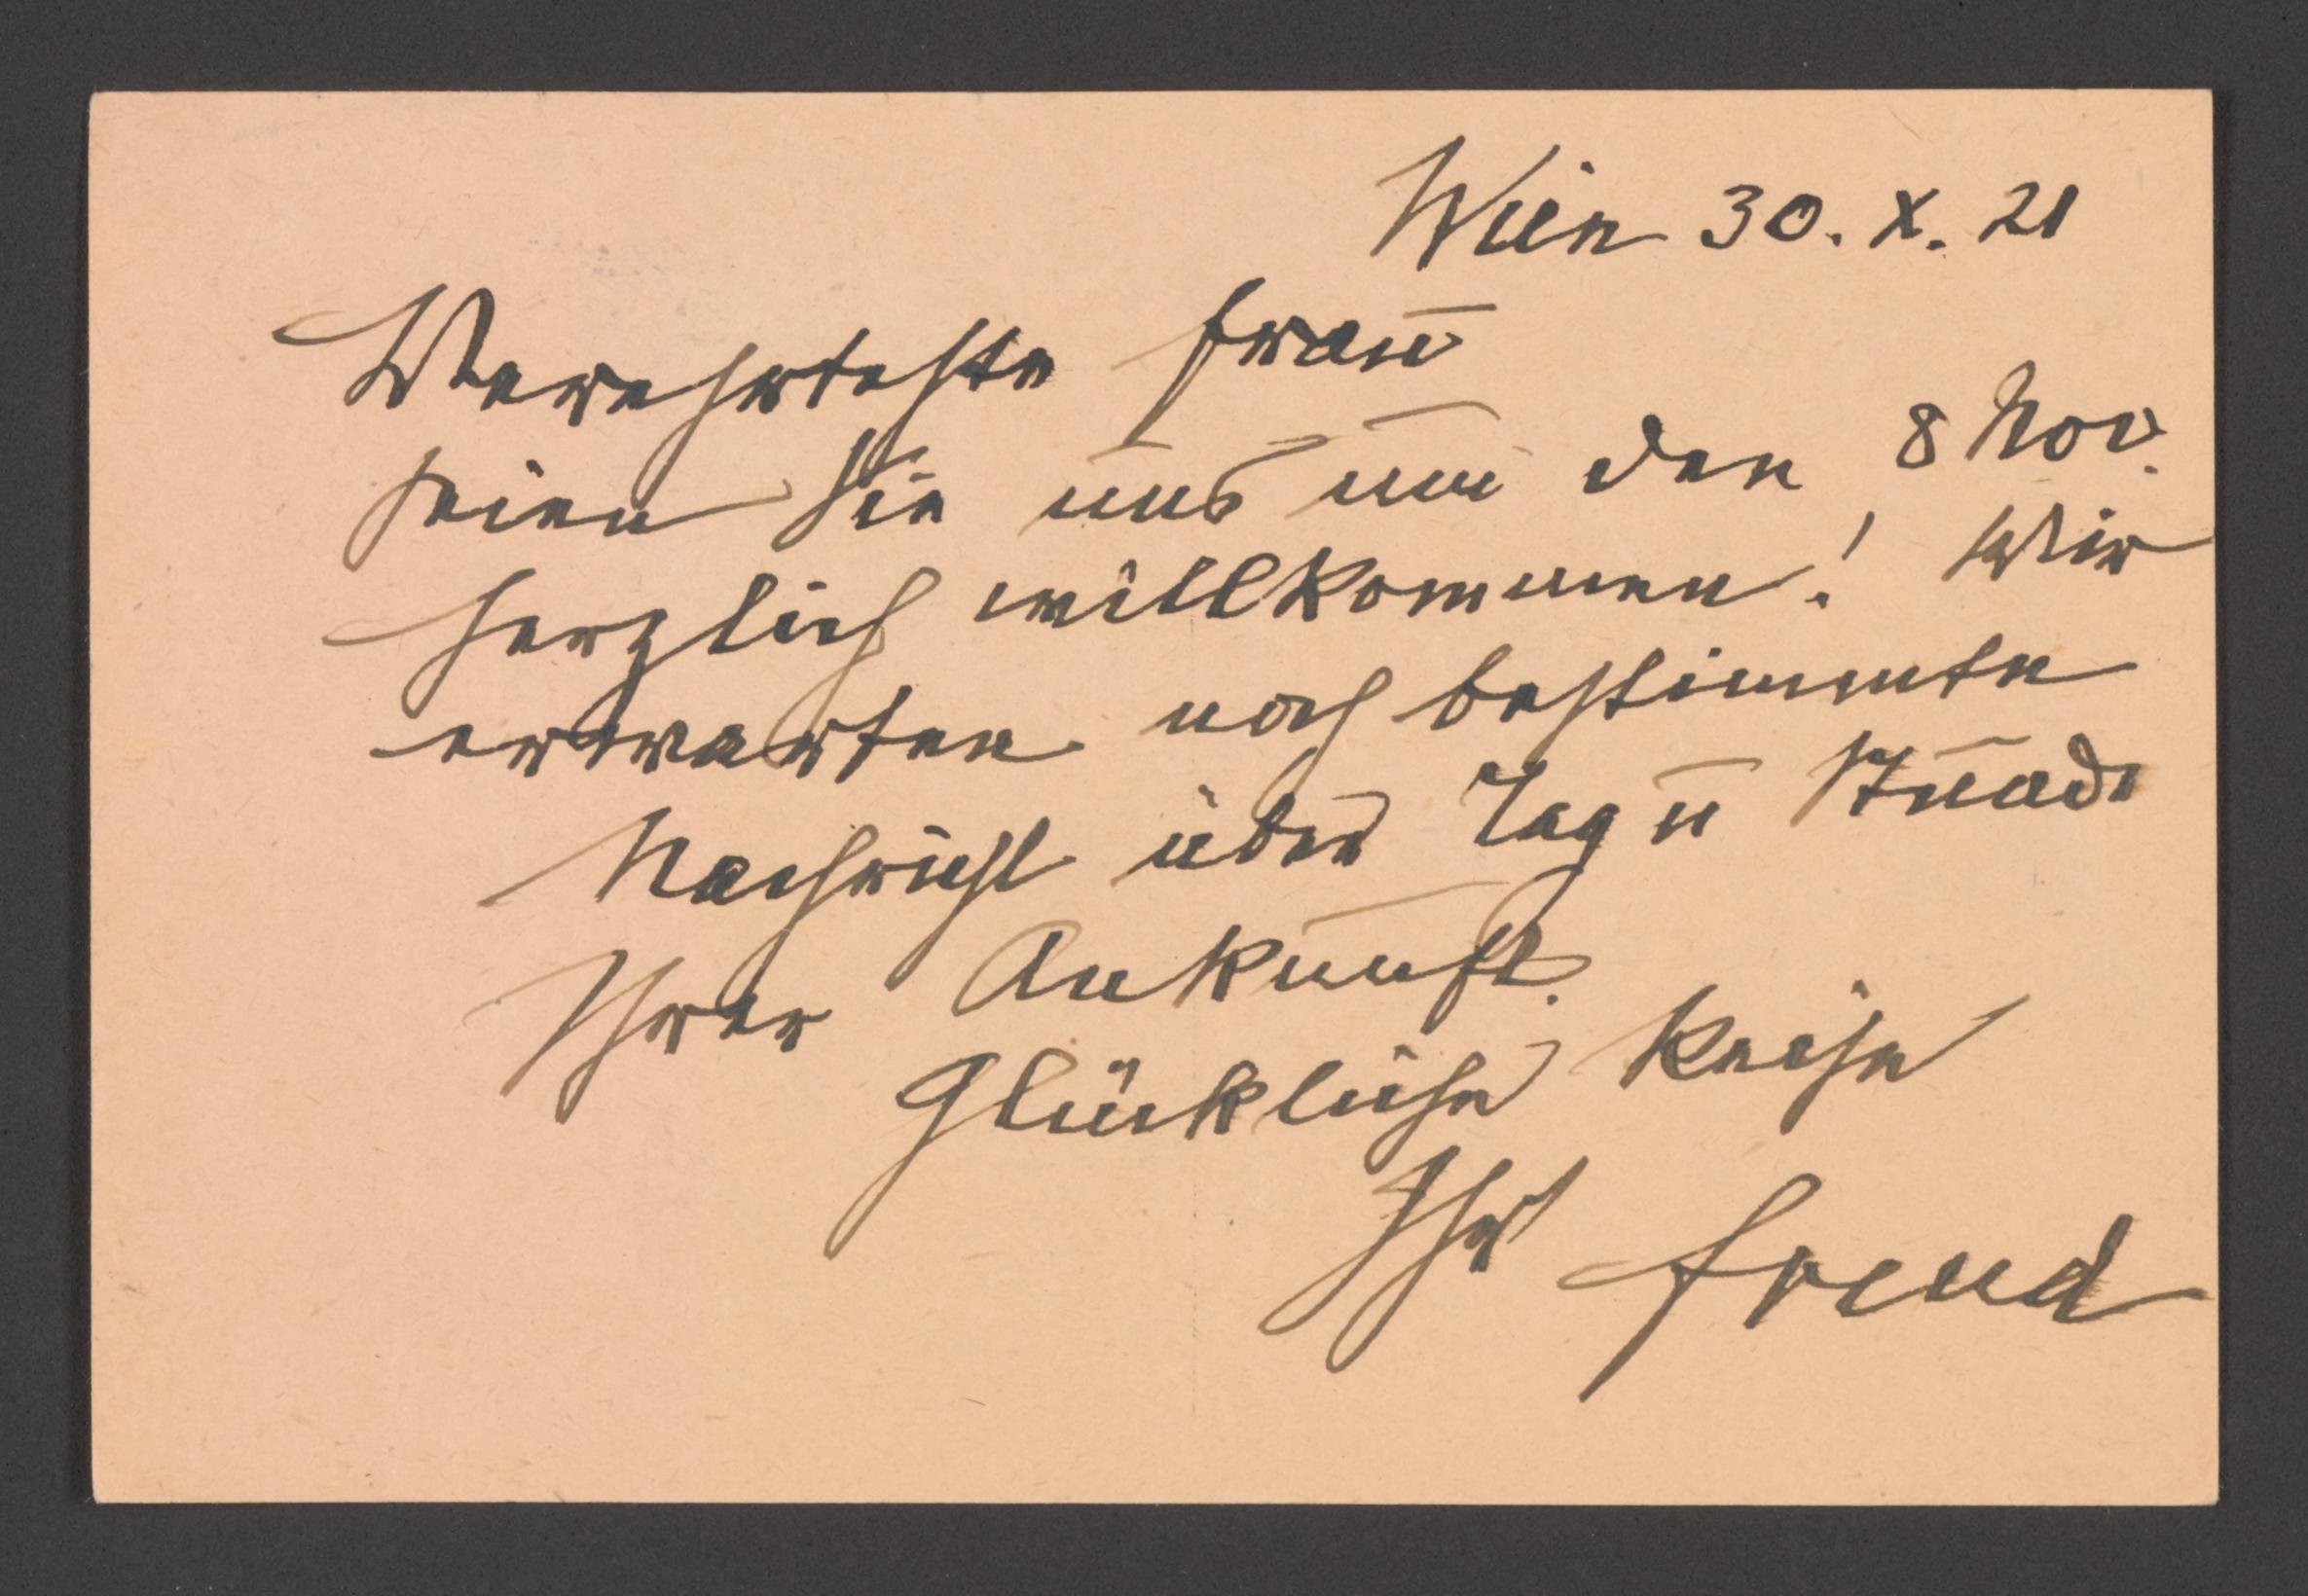 Wien 30. X. 21
Verehrteste Frau
Seien Sie uns um den 8 Nov.
herzlich willkommen! Wir
erwarten noch bestimmte
Nachricht über Tag u Stunde
Ihrer Ankunft.
Glückliche Reise
Ihr Freud